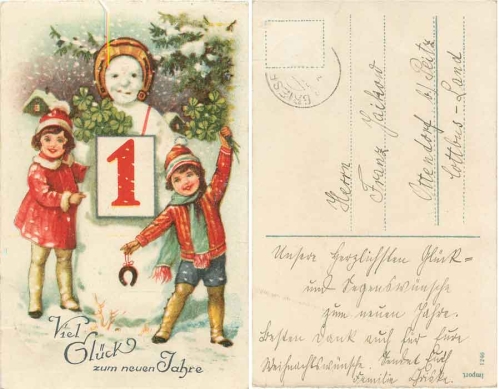 1
Viel
Glück
zum neuen Jahre
Herrn
Franz
Ottendorf b/ Peitz
Cottbus-Land
Unsere herzlichsten Glück-
und Segenswünsche
zum neuen Jahre.
Besten Dank auch für Eure
Weihnachtswünsche. Sendet Euch
Familie
Import.
1290